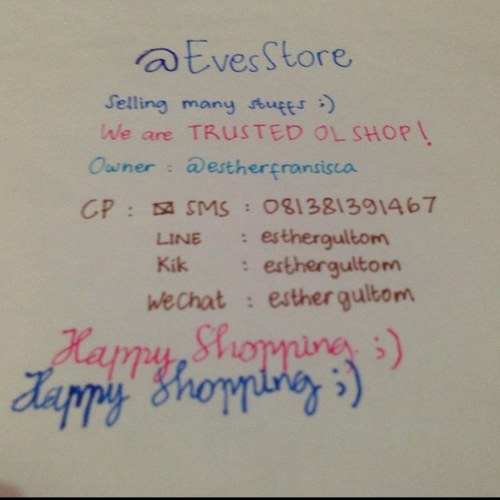 @EvesStore
Selling many stuffs :)
We are TRUSTED OLSHOP!
Owner : @estherfransisca
CP : ✉ SMS : 081381391467
LINE : esthergultom
Kik : esthergultom
WeChat : esthergultom
Happy Shopping ;)
Happy Shopping ;)